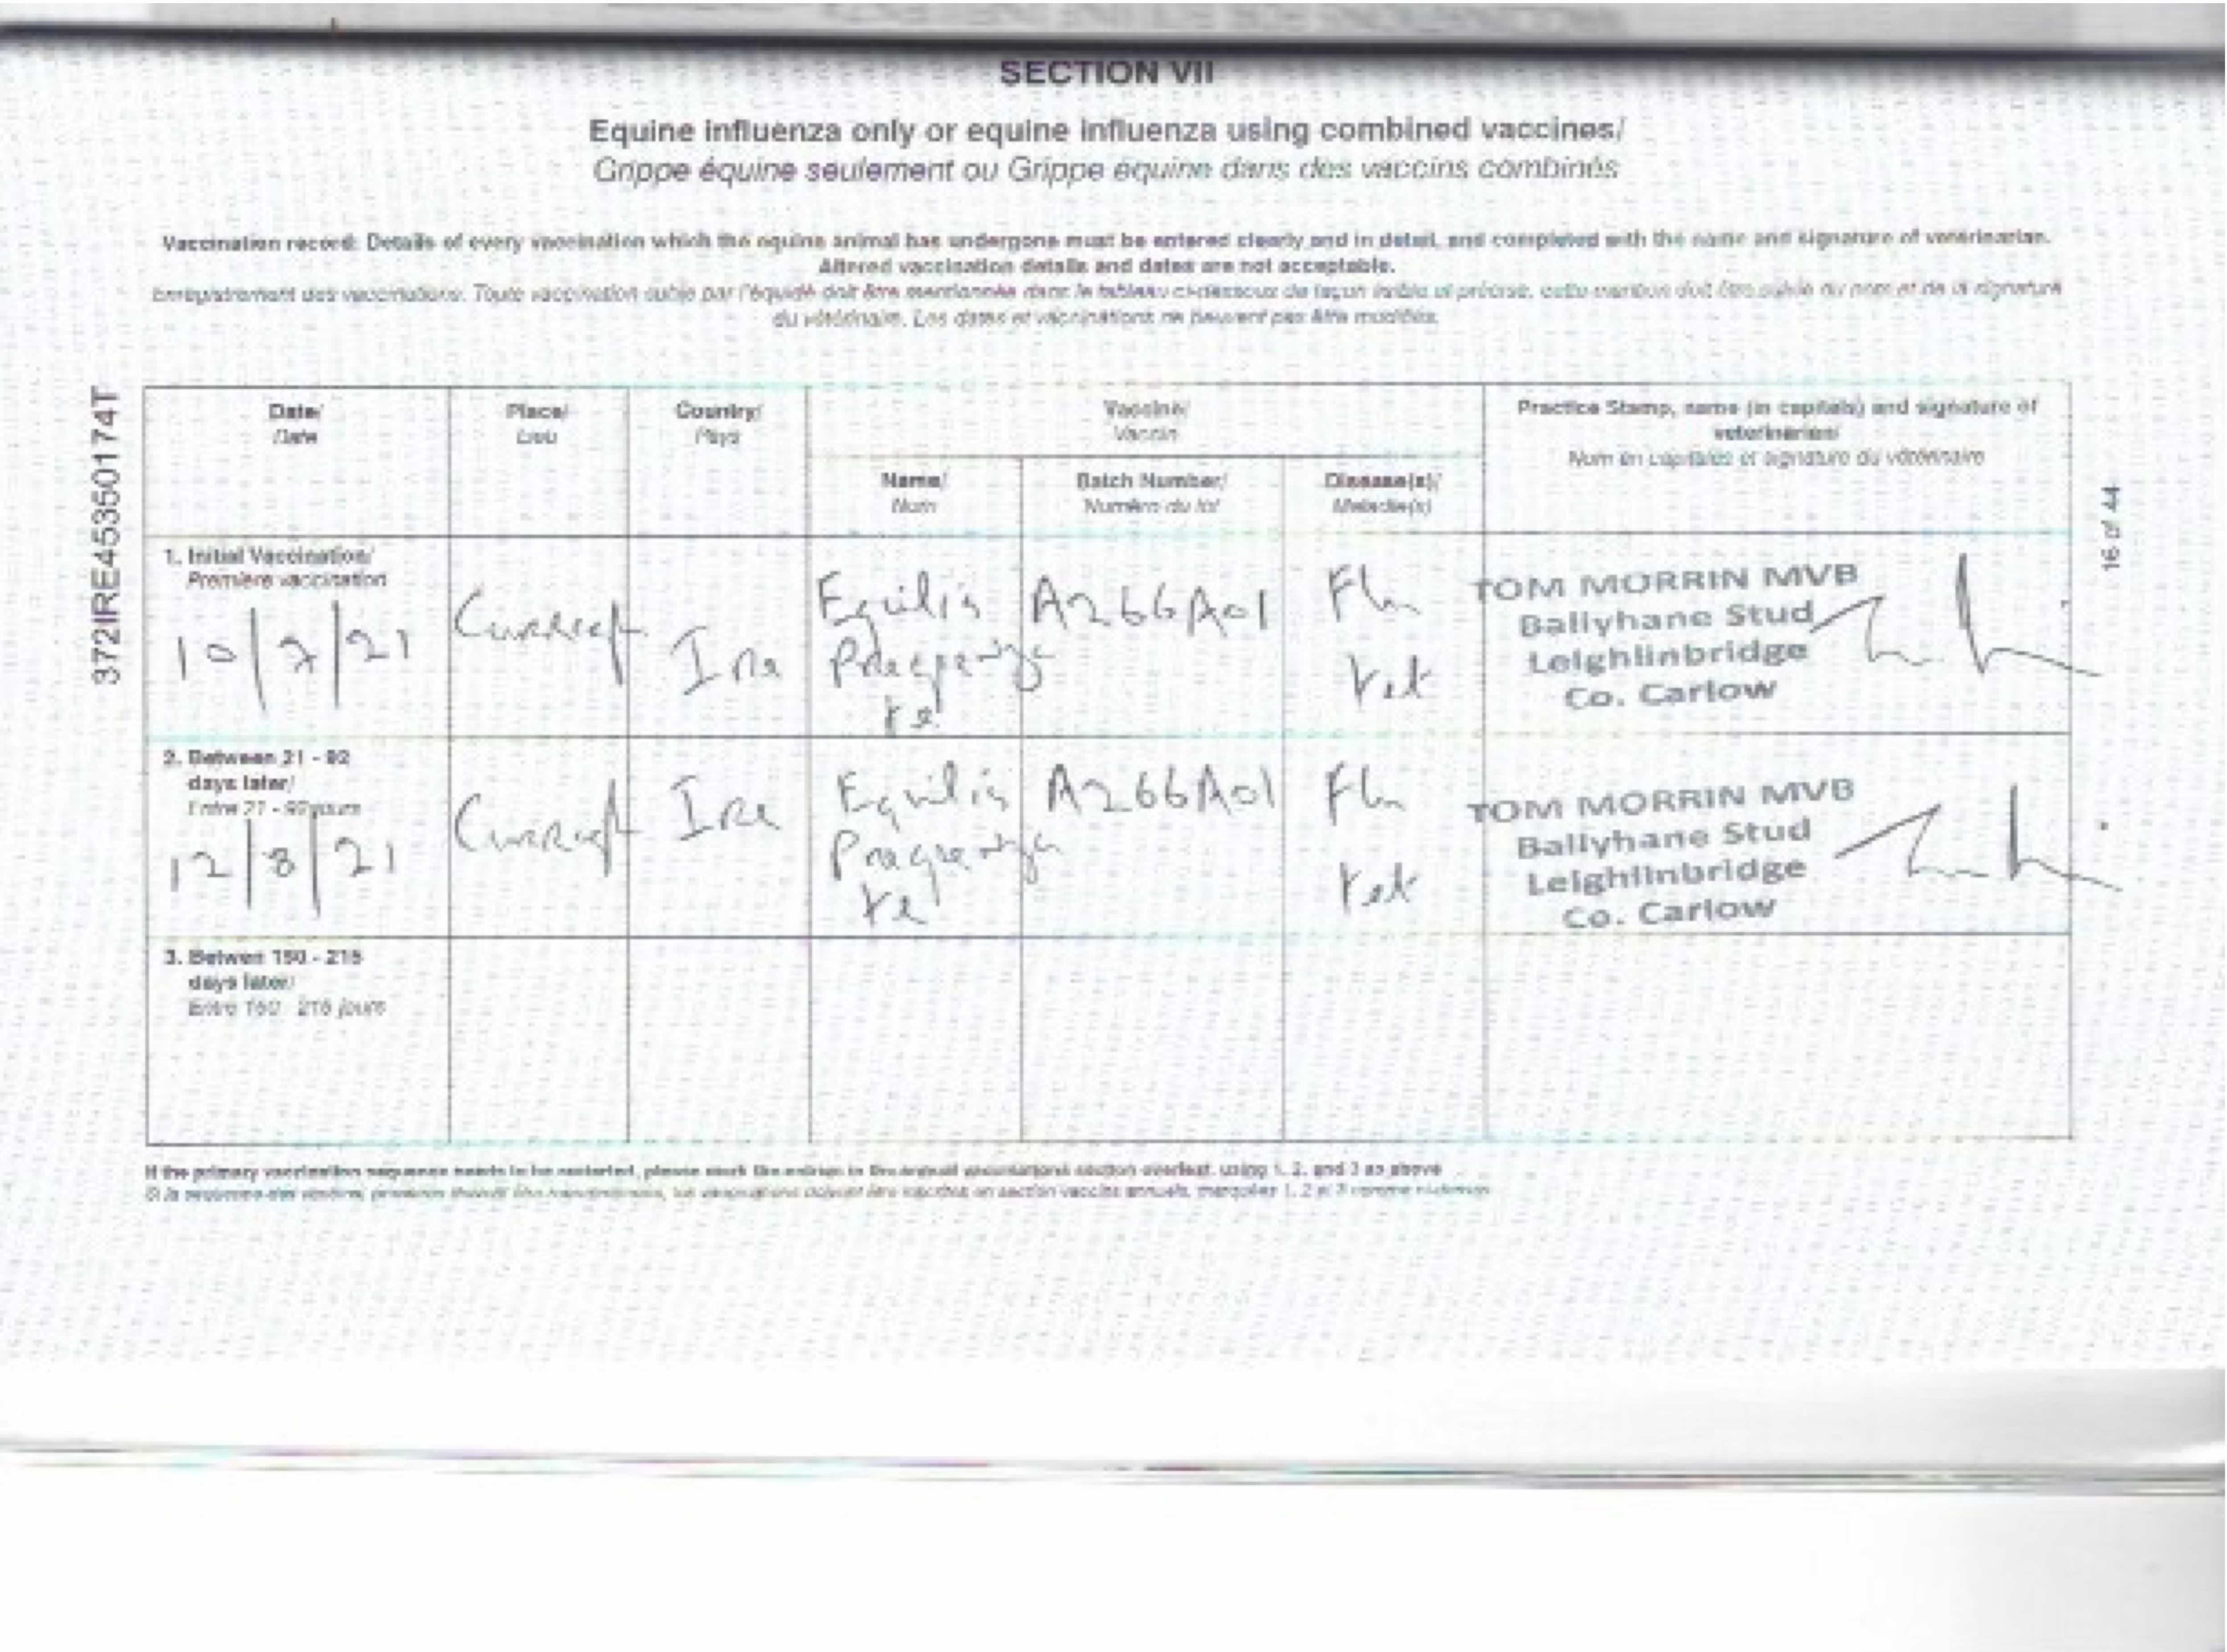 SECTION VII
Equine influenza only or equine influenza using combined vaccines/
Grippe équine seulement ou Grippe équine dans des vaccins combinés
Vaccination record: Details of every vaccination which the equine animal has undergone must be entered clearly and in detail, and completed with the name and signature of veterinarian.
Altered vaccination details and dates are not acceptable.
Enregistrement des vaccinations: Toute vaccination subie par l'équidé doit être mentionnée dans le tableau ci-dessous de façon lisible et précise, cette mention doit être suivie du nom et de la signature
du vétérinaire. Les dates et vaccinations ne peuvent pas être modifiés.
372IRE45350174T
16 of 44
Date/ Place/ Country/ Vaccine/ Practice Stamp, name (in capitals) and signature of
Date Lieu Pays Vaccin veterinarian/
Nom en capitales et signature du vétérinaire
Name/ Batch Number/ Disease(s)/
Nom Numéro du lot Maladie(s)
1. Initial Vaccination/
Première vaccination
10/7/21 Curragh Ire Equilis A266A01 Flu
Prequenza
te
Tet
TOM MORRIN MVB
Ballyhane Stud
Leighlinbridge
Co. Carlow
2. Between 21 - 92
days later/
Entre 21 - 92 jours
12/8/21 Curragh Ire Equilis A266A01 Flu
Prequenza
te
Tet
TOM MORRIN MVB
Ballyhane Stud
Leighlinbridge
Co. Carlow
3. Betwen 150 - 215
days later/
Entre 150 - 215 jours
If the primary vaccination sequence needs to be restarted, please mark the entries in the annual vaccinations section overleaf, using 1, 2, and 3 as above